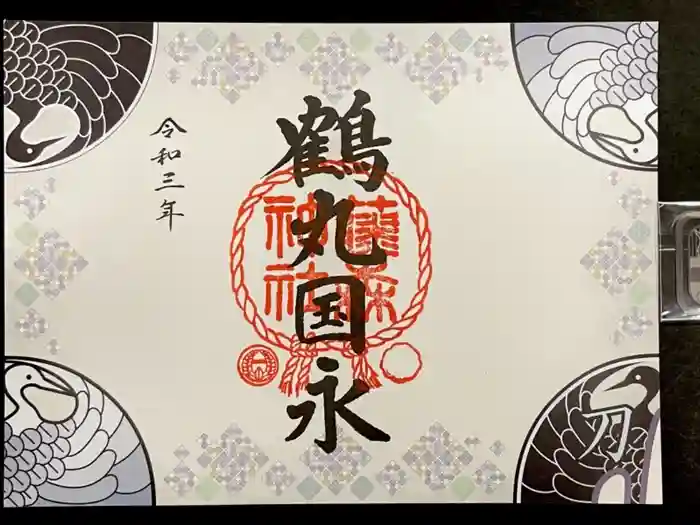 令和三年
鶴丸国永
藤森
神社
刀